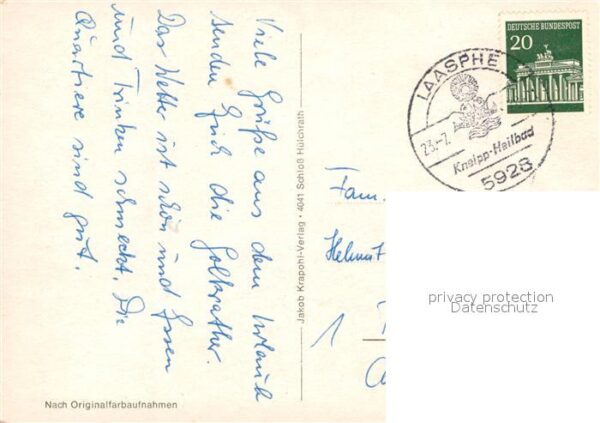 Viele Grüße aus dem Urlaub
senden Euch die Golkrather.
Das Wetter ist schön und Essen
und Trinken schmeckt. Die
Quartiere sind gut.
Nach Originalfarbaufnahmen
Jakob Krapohl-Verlag · 4041 Schloß Hülchrath
DEUTSCHE BUNDESPOST
20
LAASPHE
23.-7.
Kneipp-Heilbad
5928
Fam.
Helmut
1
privacy protection
Datenschutz